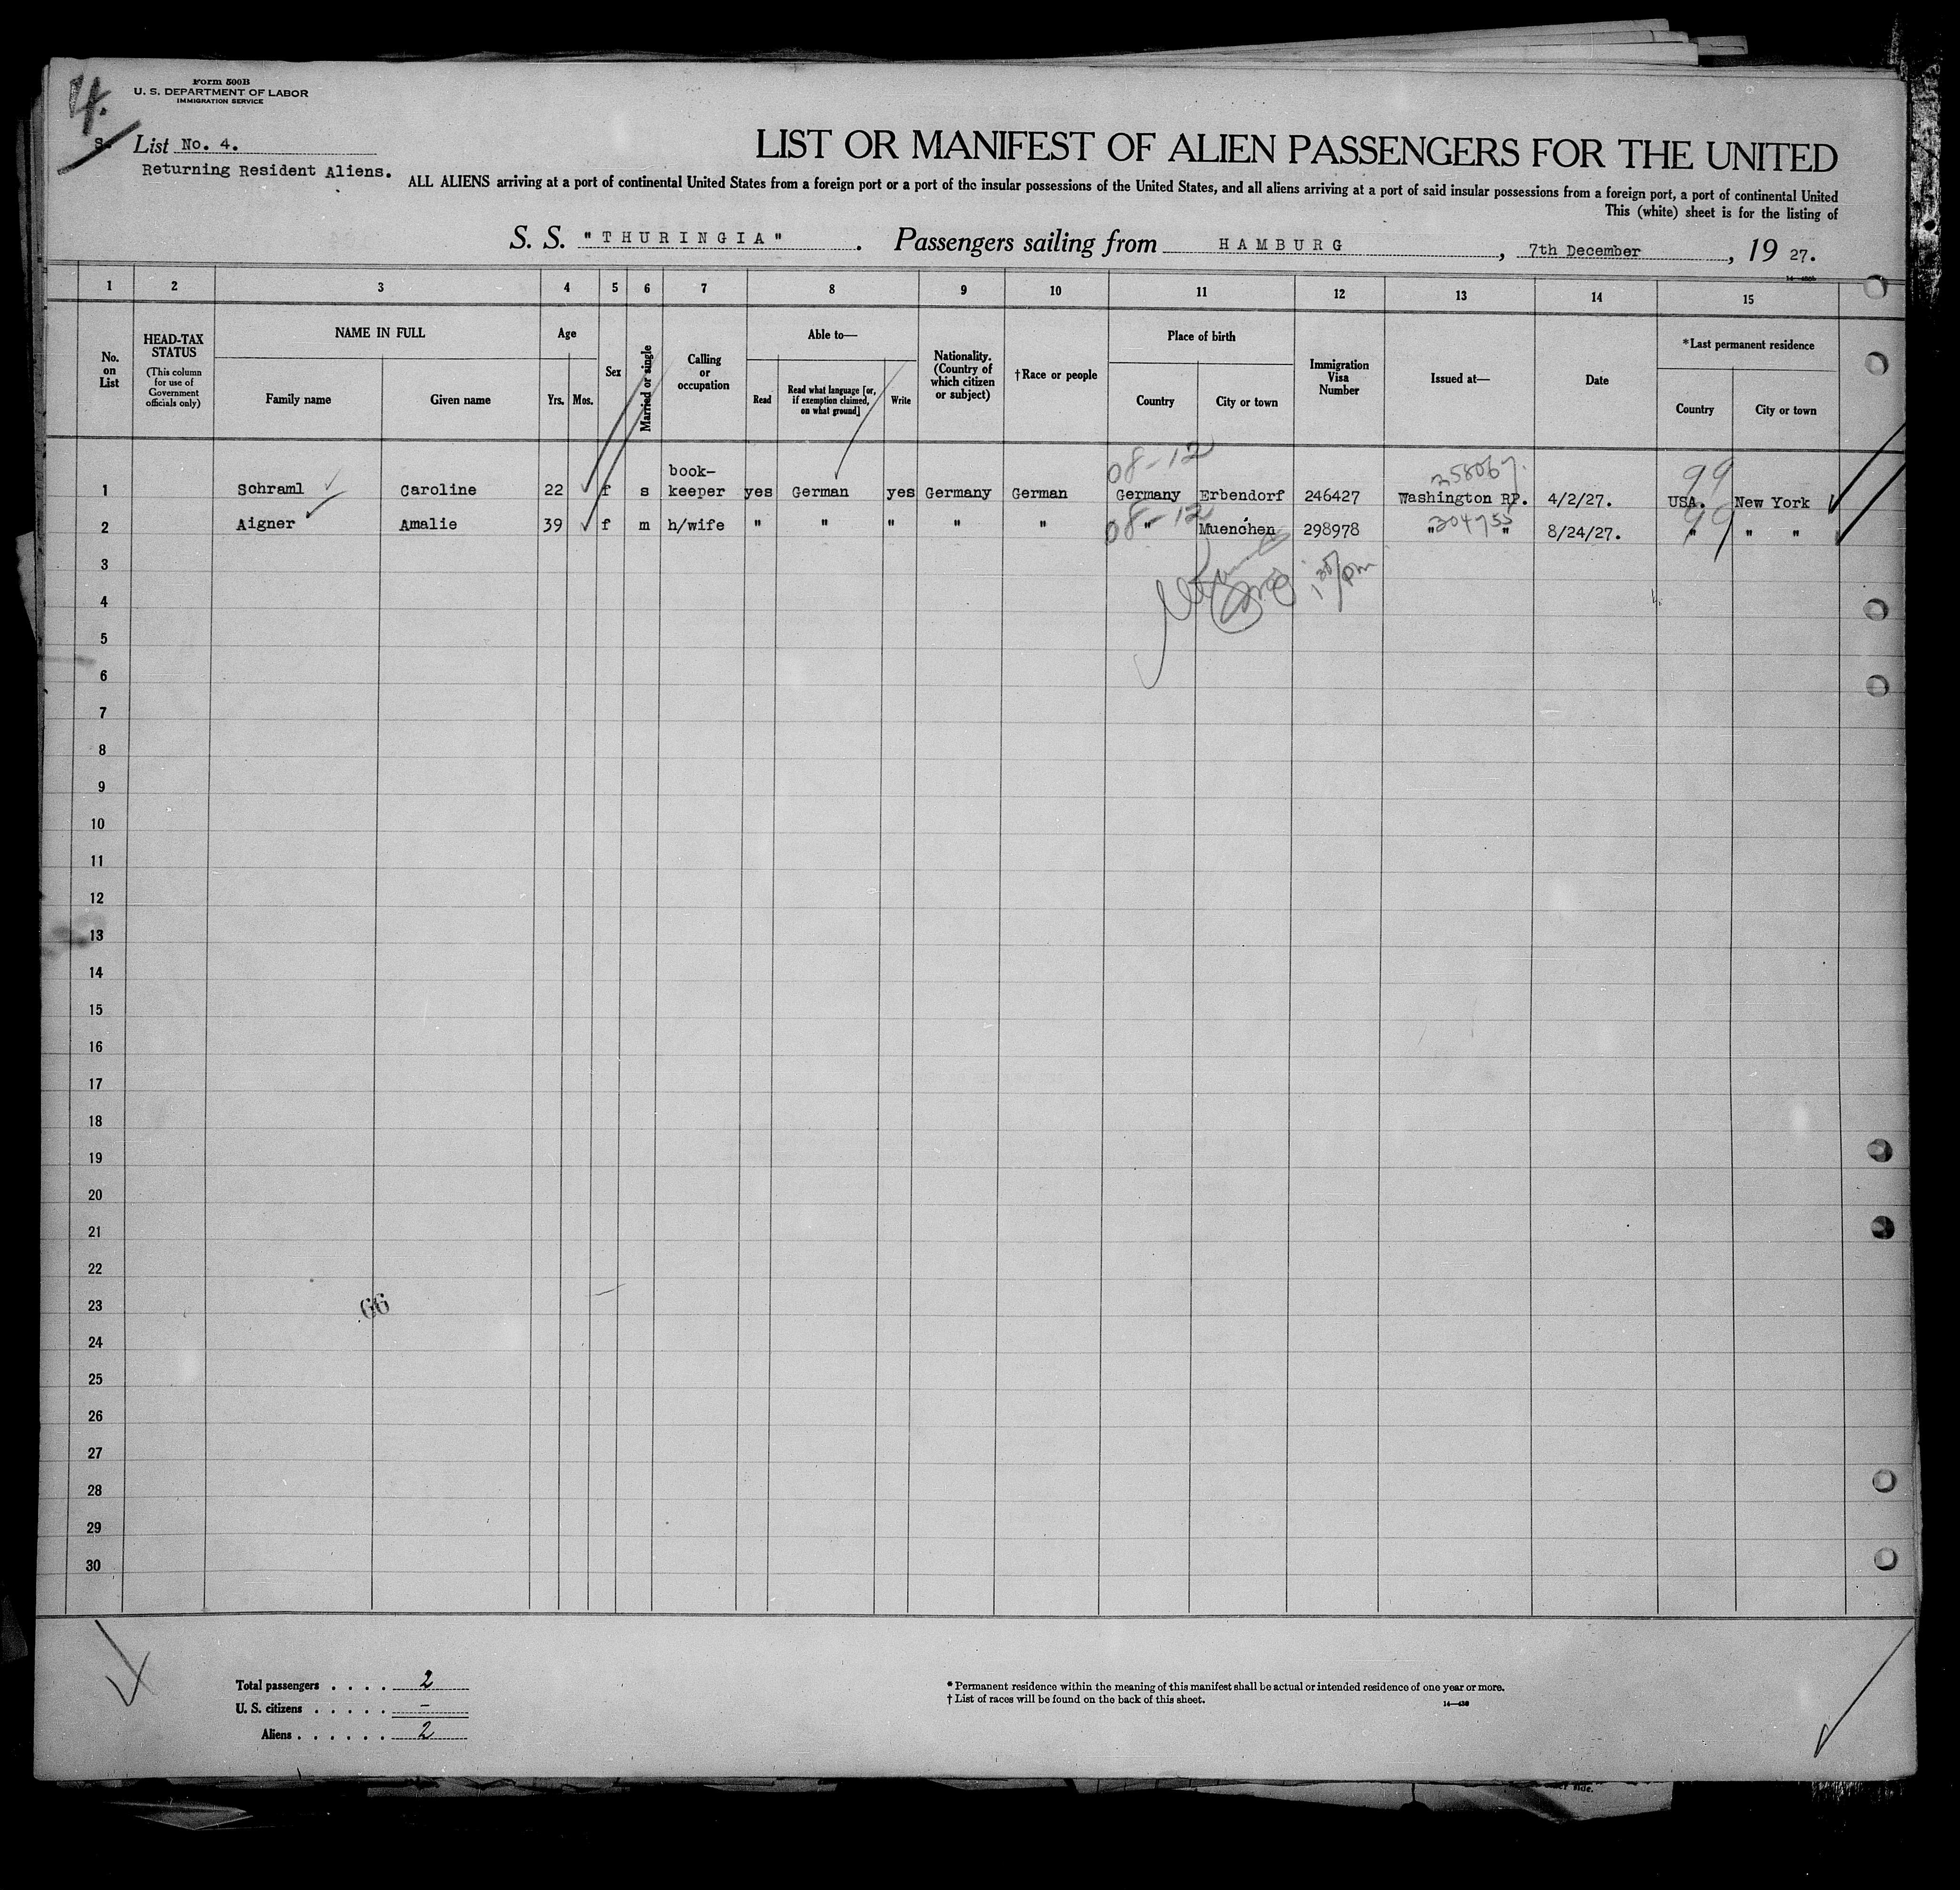 4.
Form 500B
U. S. DEPARTMENT OF LABOR
IMMIGRATION SERVICE
List No. 4.
Returning Resident Aliens.
LIST OR MANIFEST OF ALIEN PASSENGERS FOR THE UNITED
ALL ALIENS arriving at a port of continental United States from a foreign port or a port of the insular possessions of the United States, and all aliens arriving at a port of said insular possessions from a foreign port, a port of continental United
This (white) sheet is for the listing of
S. S. "THURINGIA" . Passengers sailing from HAMBURG , 7th December , 19 27.
1 2 3 4 5 6 7 8 9 10 11 12 13 14 15
No. on List
HEAD-TAX STATUS
(This column for use of Government officials only)
NAME IN FULL
Family name
Given name
Age
Yrs. Mos.
Sex
Married or single
Calling or occupation
Able to—
Read
Read what language [or, if exemption claimed, on what ground]
Write
Nationality. (Country of which citizen or subject)
†Race or people
Place of birth
Country
City or town
Immigration Visa Number
Issued at—
Date
*Last permanent residence
Country
City or town
08-12 258067. 99
1 Schraml Caroline 22 f s book-keeper yes German yes Germany German Germany Erbendorf 246427 Washington RP. 4/2/27. USA. New York
08-12 304755 99
2 Aigner Amalie 39 f m h/wife " " " " " " Muenchen 298978 " " 8/24/27. " " "
1 30/pm
3
4
5
6
7
8
9
10
11
12
13
14
15
16
17
18
19
20
21
22
23
66
24
25
26
27
28
29
30
Total passengers . . . . 2
U. S. citizens . . . . . –
Aliens . . . . . . 2
* Permanent residence within the meaning of this manifest shall be actual or intended residence of one year or more.
† List of races will be found on the back of this sheet.